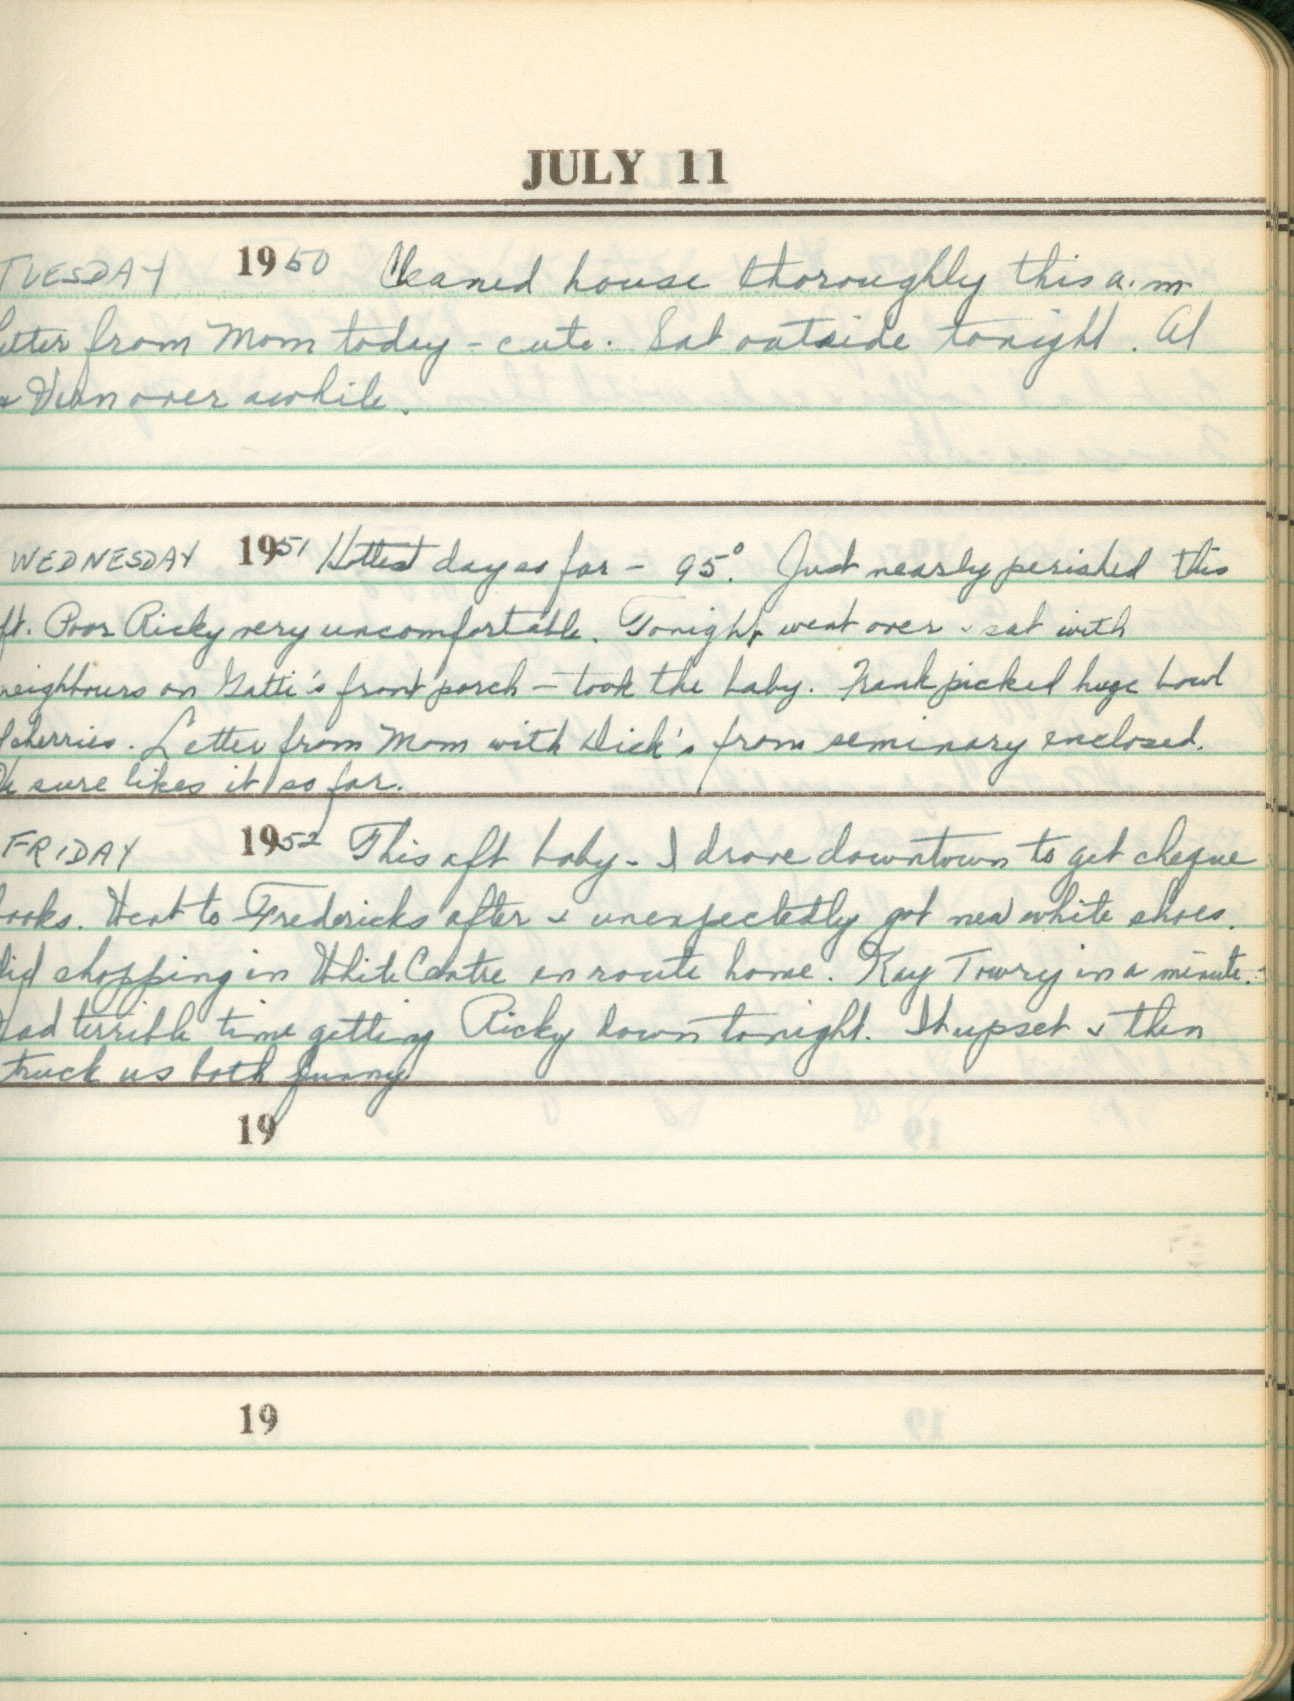 JULY 11
TUESDAY 1950 Cleaned house thoroughly this a.m.
etter from Mom today - cute. Sat outside tonight. Al
& Vern over awhile.
WEDNESDAY 1951 Hottest day so far - 95°. Just nearly perished this
ft. Poor Ricky very uncomfortable. Tonight went over & sat with
neighbours on Gatti's front porch - took the baby. Frank picked huge bowl
cherries. Letter from Mom with Dick's from seminary enclosed.
He sure likes it so far.
FRIDAY 1952 This aft baby - I drove downtown to get cheque
ooks. Went to Fredericks after & unexpectedly got new white shoes.
Did shopping in White Centre en route home. Kay Towry in a minute.
Had terrible time getting Ricky down tonight. It upset & then
truck us both funny.
19
19